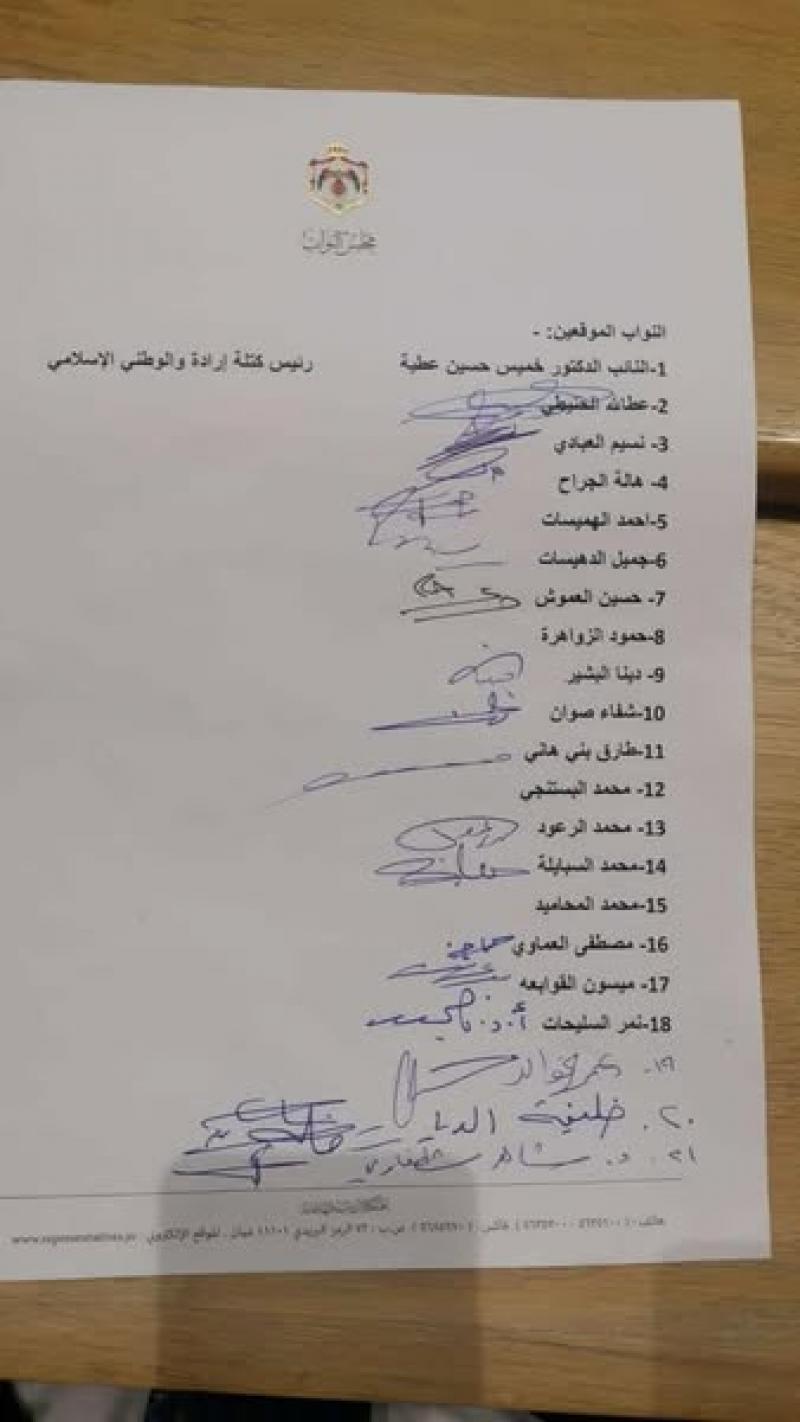 مجلس النواب
النواب الموقعين: -
1-النائب الدكتور خميس حسين عطية رئيس كتلة إرادة والوطني الإسلامي
2-عطالله الحنيطي
3- نسيم العبادي
4- هالة الجراح
5-احمد الهميسات
6-جميل الدهيسات
7- حسين العموش
8-حمود الزواهرة
9- دينا البشير
10-شفاء صوان
11-طارق بني هاني
12- محمد البستنجي
13- محمد الرعود
14-محمد السبايلة
15-محمد المحاميد
16- مصطفى العماوي
17- ميسون القوابعه
18-نمر السليحات أ.د.
١٩-
٢٠. خليفة الديات
٢١. د. شاهر شطناوي
المملكة الأردنية الهاشمية
هاتف: فاكس: ص.ب: ٧٢ الرمز البريدي ١١١٠١ عمان . الموقع الإلكتروني www.representatives.jo